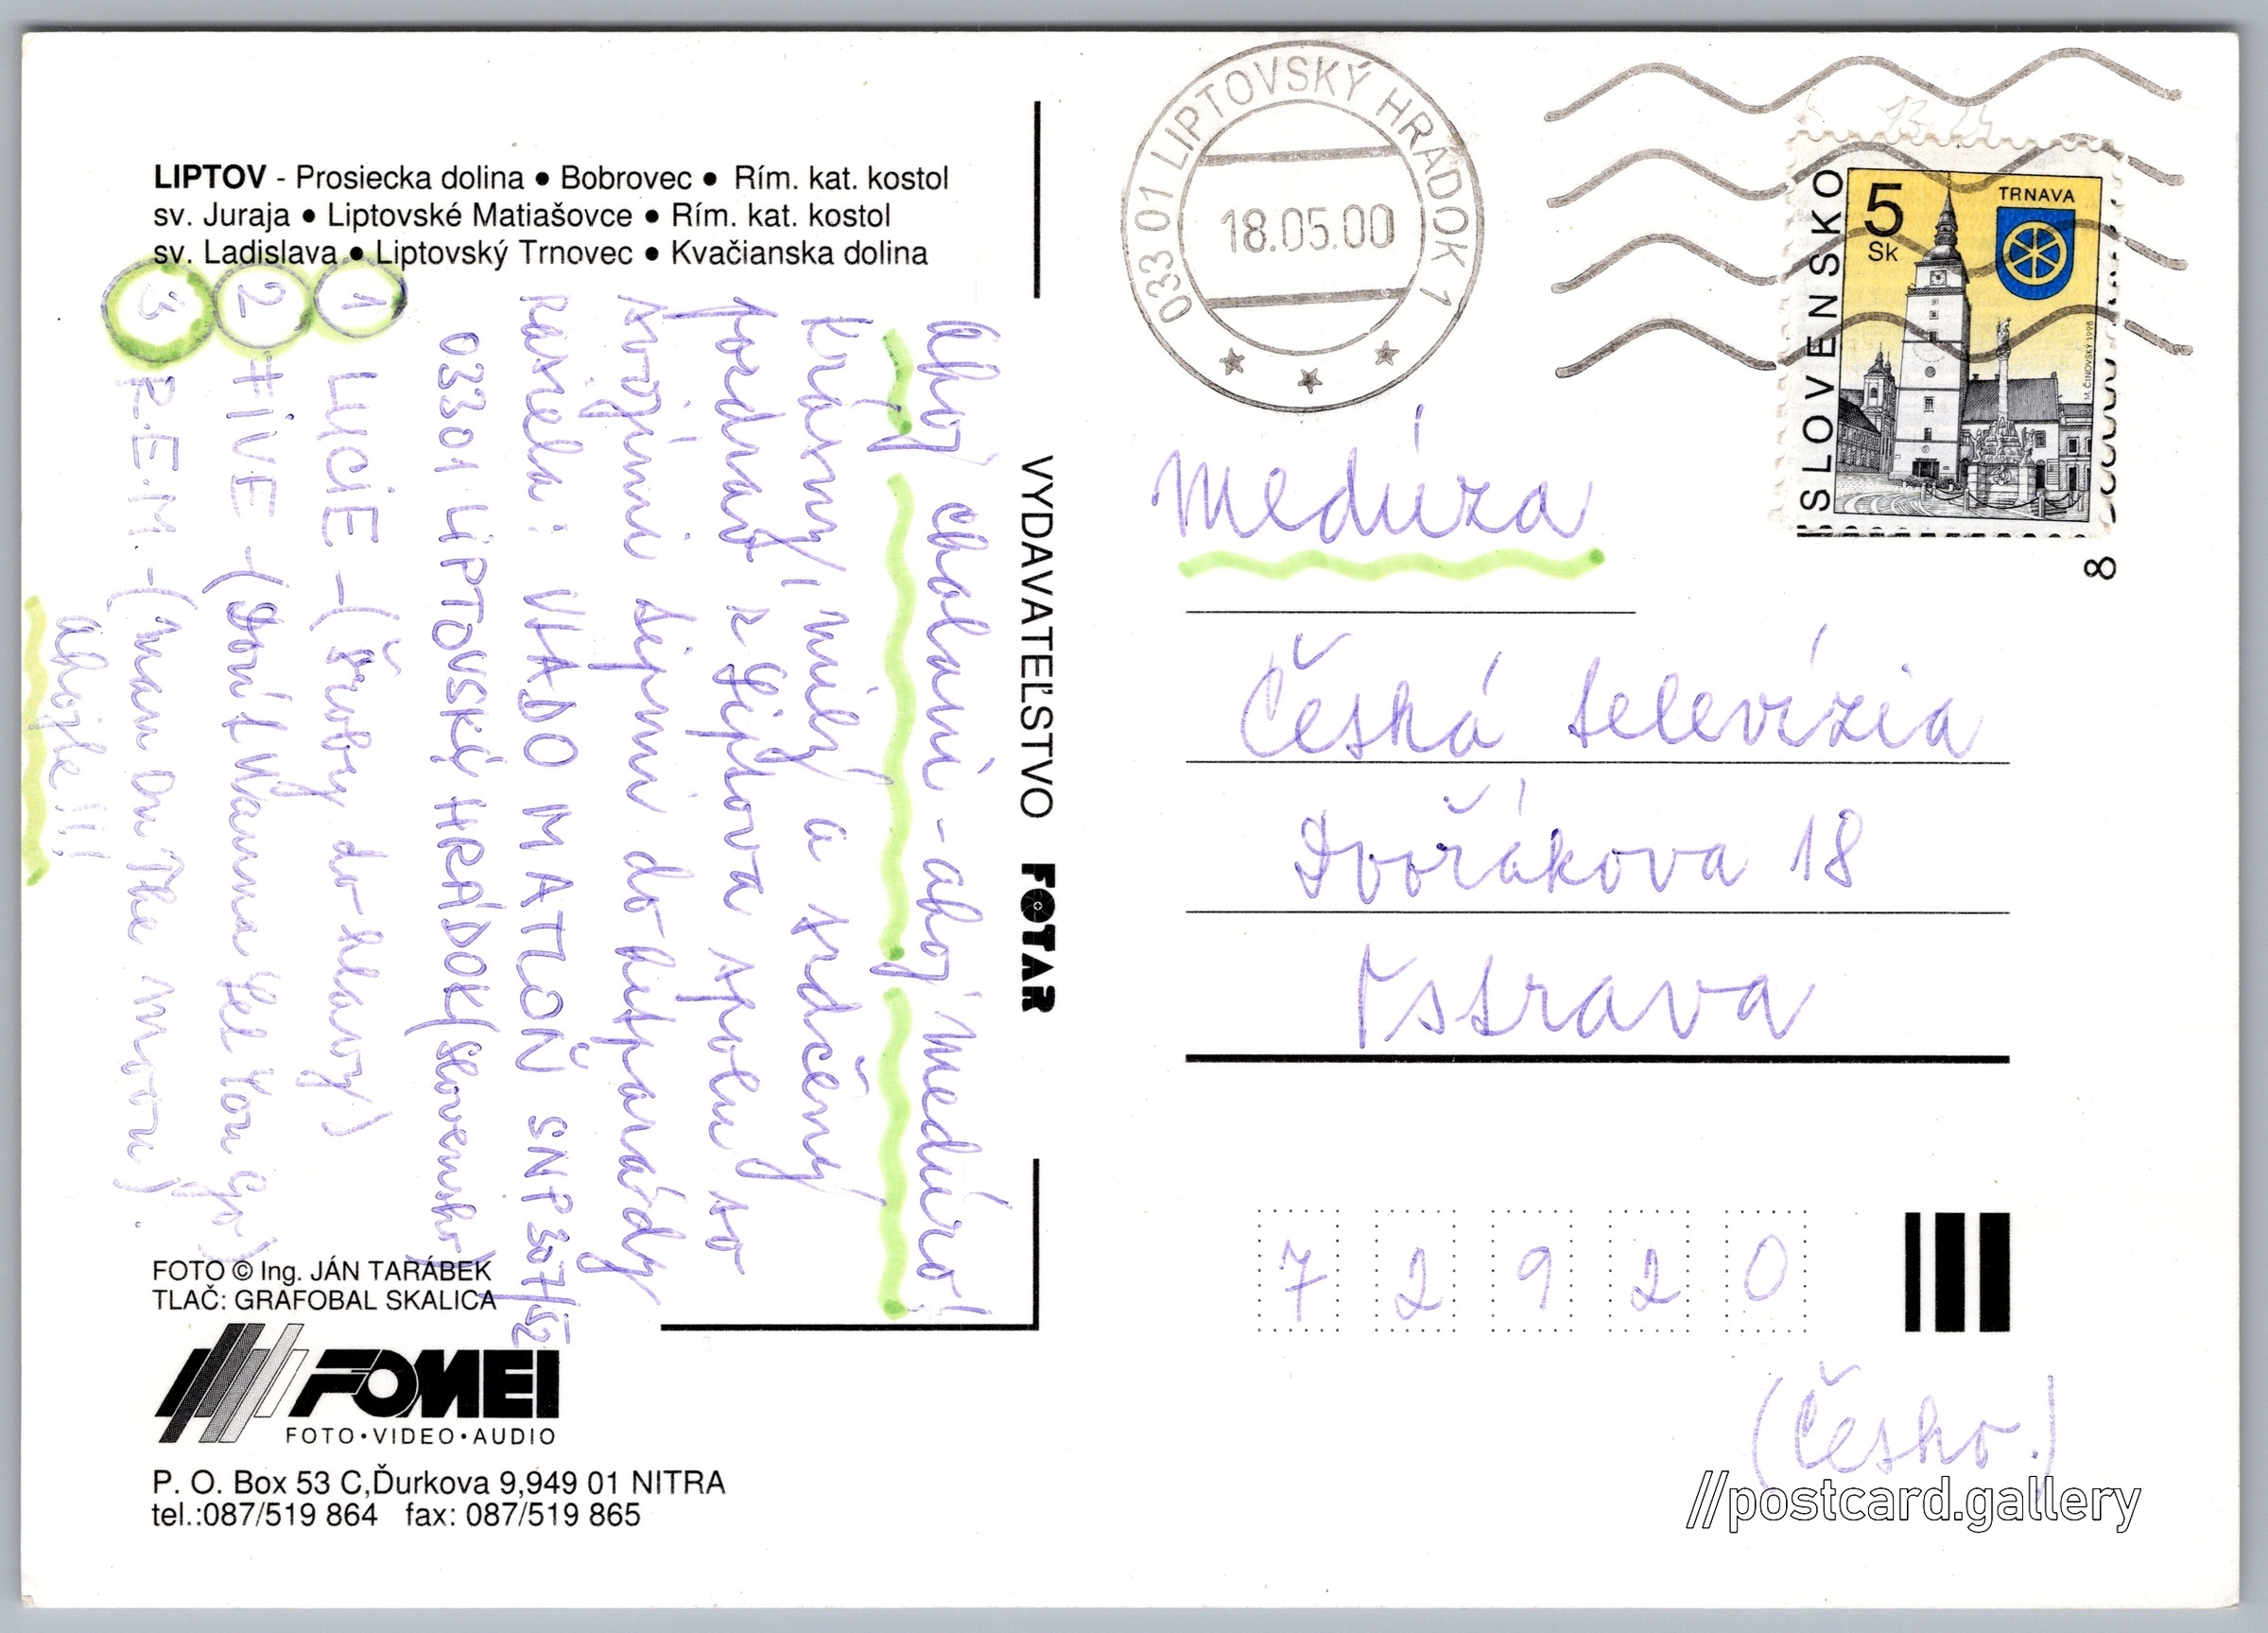 LIPTOV - Prosiecka dolina ● Bobrovec ● Rím. kat. kostol
sv. Juraja ● Liptovské Matiašovce ● Rím. kat. kostol
sv. Ladislava ● Liptovský Trnovec ● Kvačianska dolina
ahoj chalani - ahoj medúzo!
Krásny, milý a srdčený
pozdrav z Liptova spolu so
svojimi tipmi do hitparády
posiela: VLADO MATLOŇ SNP 307/52
03301 LIPTOVSKÝ HRÁDOK (Slovensko)
1 LUCIE - (Šrouby do hlavy)
2 FIVE - (Don't Wanna Let You Go)
3 R.E.M - (Man On The Moon).
ahojte!!!
FOTO © Ing. JÁN TARÁBEK
TLAČ: GRAFOBAL SKALICA
FOMEI
FOTO•VIDEO•AUDIO
P. O. Box 53 C,Ďurkova 9,949 01 NITRA
tel.:087/519 864 fax: 087/519 865
VYDAVATEĽSTVO FOTAR
033 01 LIPTOVSKÝ HRÁDOK 1
18.05.00
SLOVENSKO
5
Sk
TRNAVA
M. ČINOVSKÝ 1998
8
Medúza
Česká televízia
Dvořákova 18
Ostrava
7 2 9 2 0
(Česko.)
//postcard.gallery